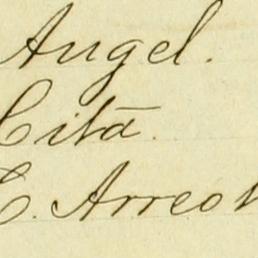 Angel.
Citā.
C. Arreo